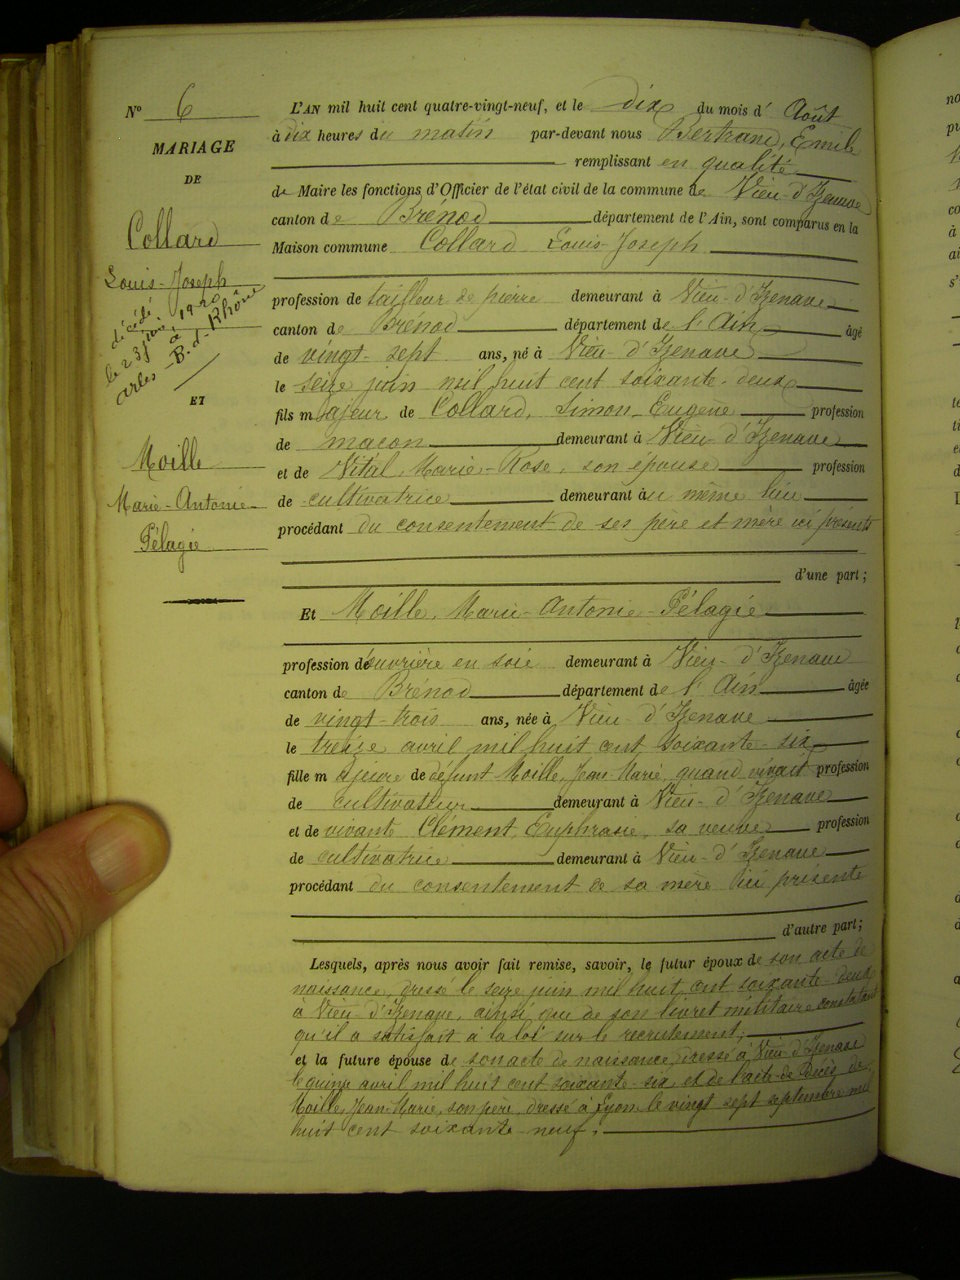 N° 6
MARIAGE
DE
Collard
Louis-Joseph
décédé
le 23 1920
à
Arles - B.-d.-Rhône
ET
Moille
Marie-Antonie-
Pélagie
L'AN mil huit cent quatre-vingt-neuf, et le dix du mois d' Août
à dix heures du matin par-devant nous Bertrand, Emile
remplissant en qualité
de Maire les fonctions d'Officier de l'état civil de la commune de Vieu-d'Izenave
canton de Brénod département de l'Ain, sont comparus en la
Maison commune Collard Louis-Joseph
profession de tailleur de pierre demeurant à Vieu-d'Izenave
canton de Brénod département de l'Ain âgé
de vingt-sept ans, né à Vieu-d'Izenave
le seize juin mil huit cent soixante-deux
fils majeur de Collard, Simon-Eugène profession
de maçon demeurant à Vieu-d'Izenave
et de Vital, Marie-Rose, son épouse profession
de cultivatrice demeurant au même lieu
procédant du consentement de ses père et mère ici présents
d'une part;
Et Moille, Marie-Antonie-Pélagie
profession d'ouvrière en soie demeurant à Vieu-d'Izenave
canton de Brénod département de l'Ain âgée
de vingt-trois ans, née à Vieu-d'Izenave
le treize avril mil huit cent soixante-six
fille majeure de défunt Moille, Jean-Marie, quand vivait profession
de cultivateur demeurant à Vieu-d'Izenave
et de vivante Clément, Euphrasie, sa veuve profession
de cultivatrice demeurant à Vieu-d'Izenave
procédant du consentement de sa mère ici présente
d'autre part;
Lesquels, après nous avoir fait remise, savoir, le futur époux de son acte de
naissance, dressé le seize juin mil huit cent soixante-deux
à Vieu-d'Izenave, ainsi que de son livret militaire constatant
qu'il a satisfait à la loi sur le recrutement;
et la future épouse de son acte de naissance, dressé à Vieu-d'Izenave
le quinze avril mil huit cent soixante-six, et de l'acte de Décès de
Moille, Jean-Marie, son père, dressé à Lyon le vingt sept septembre mil
huit cent soixante-neuf;